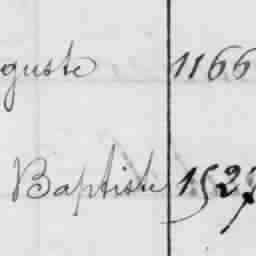 guste 1166
Baptiste 1527